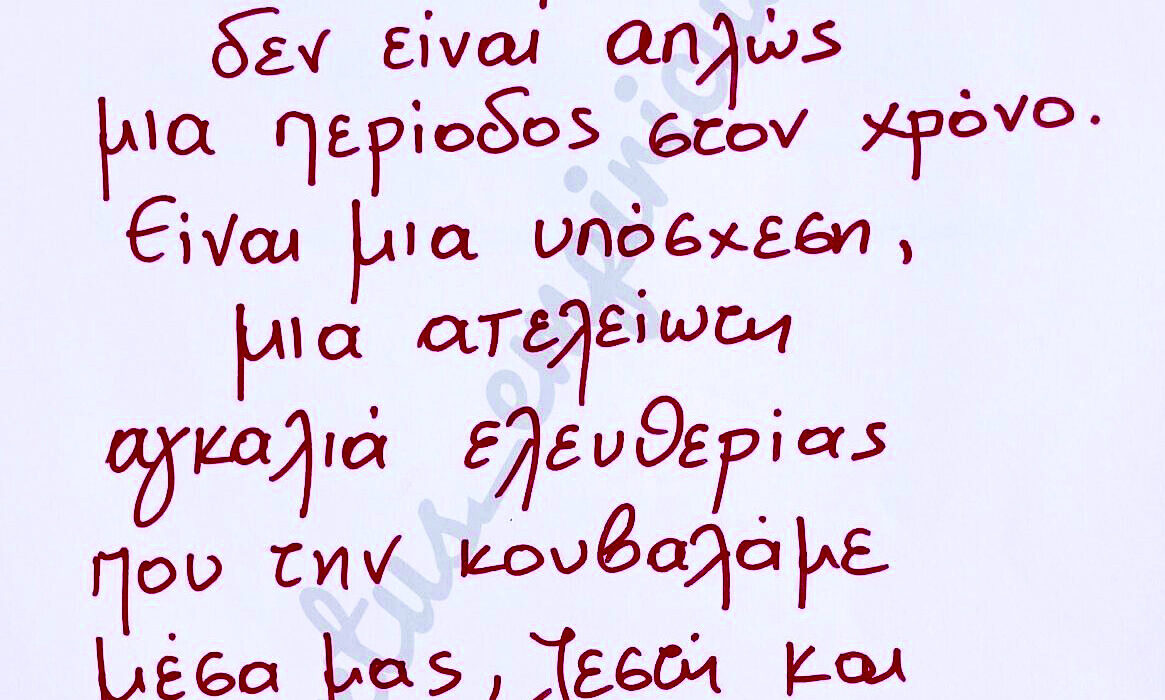 δεν είναι απλώς
μια περίοδος στον χρόνο.
Είναι μια υπόσχεση,
μια ατελείωτη
αγκαλιά ελευθερίας
που την κουβαλάμε
μέσα μας, ζεστή και